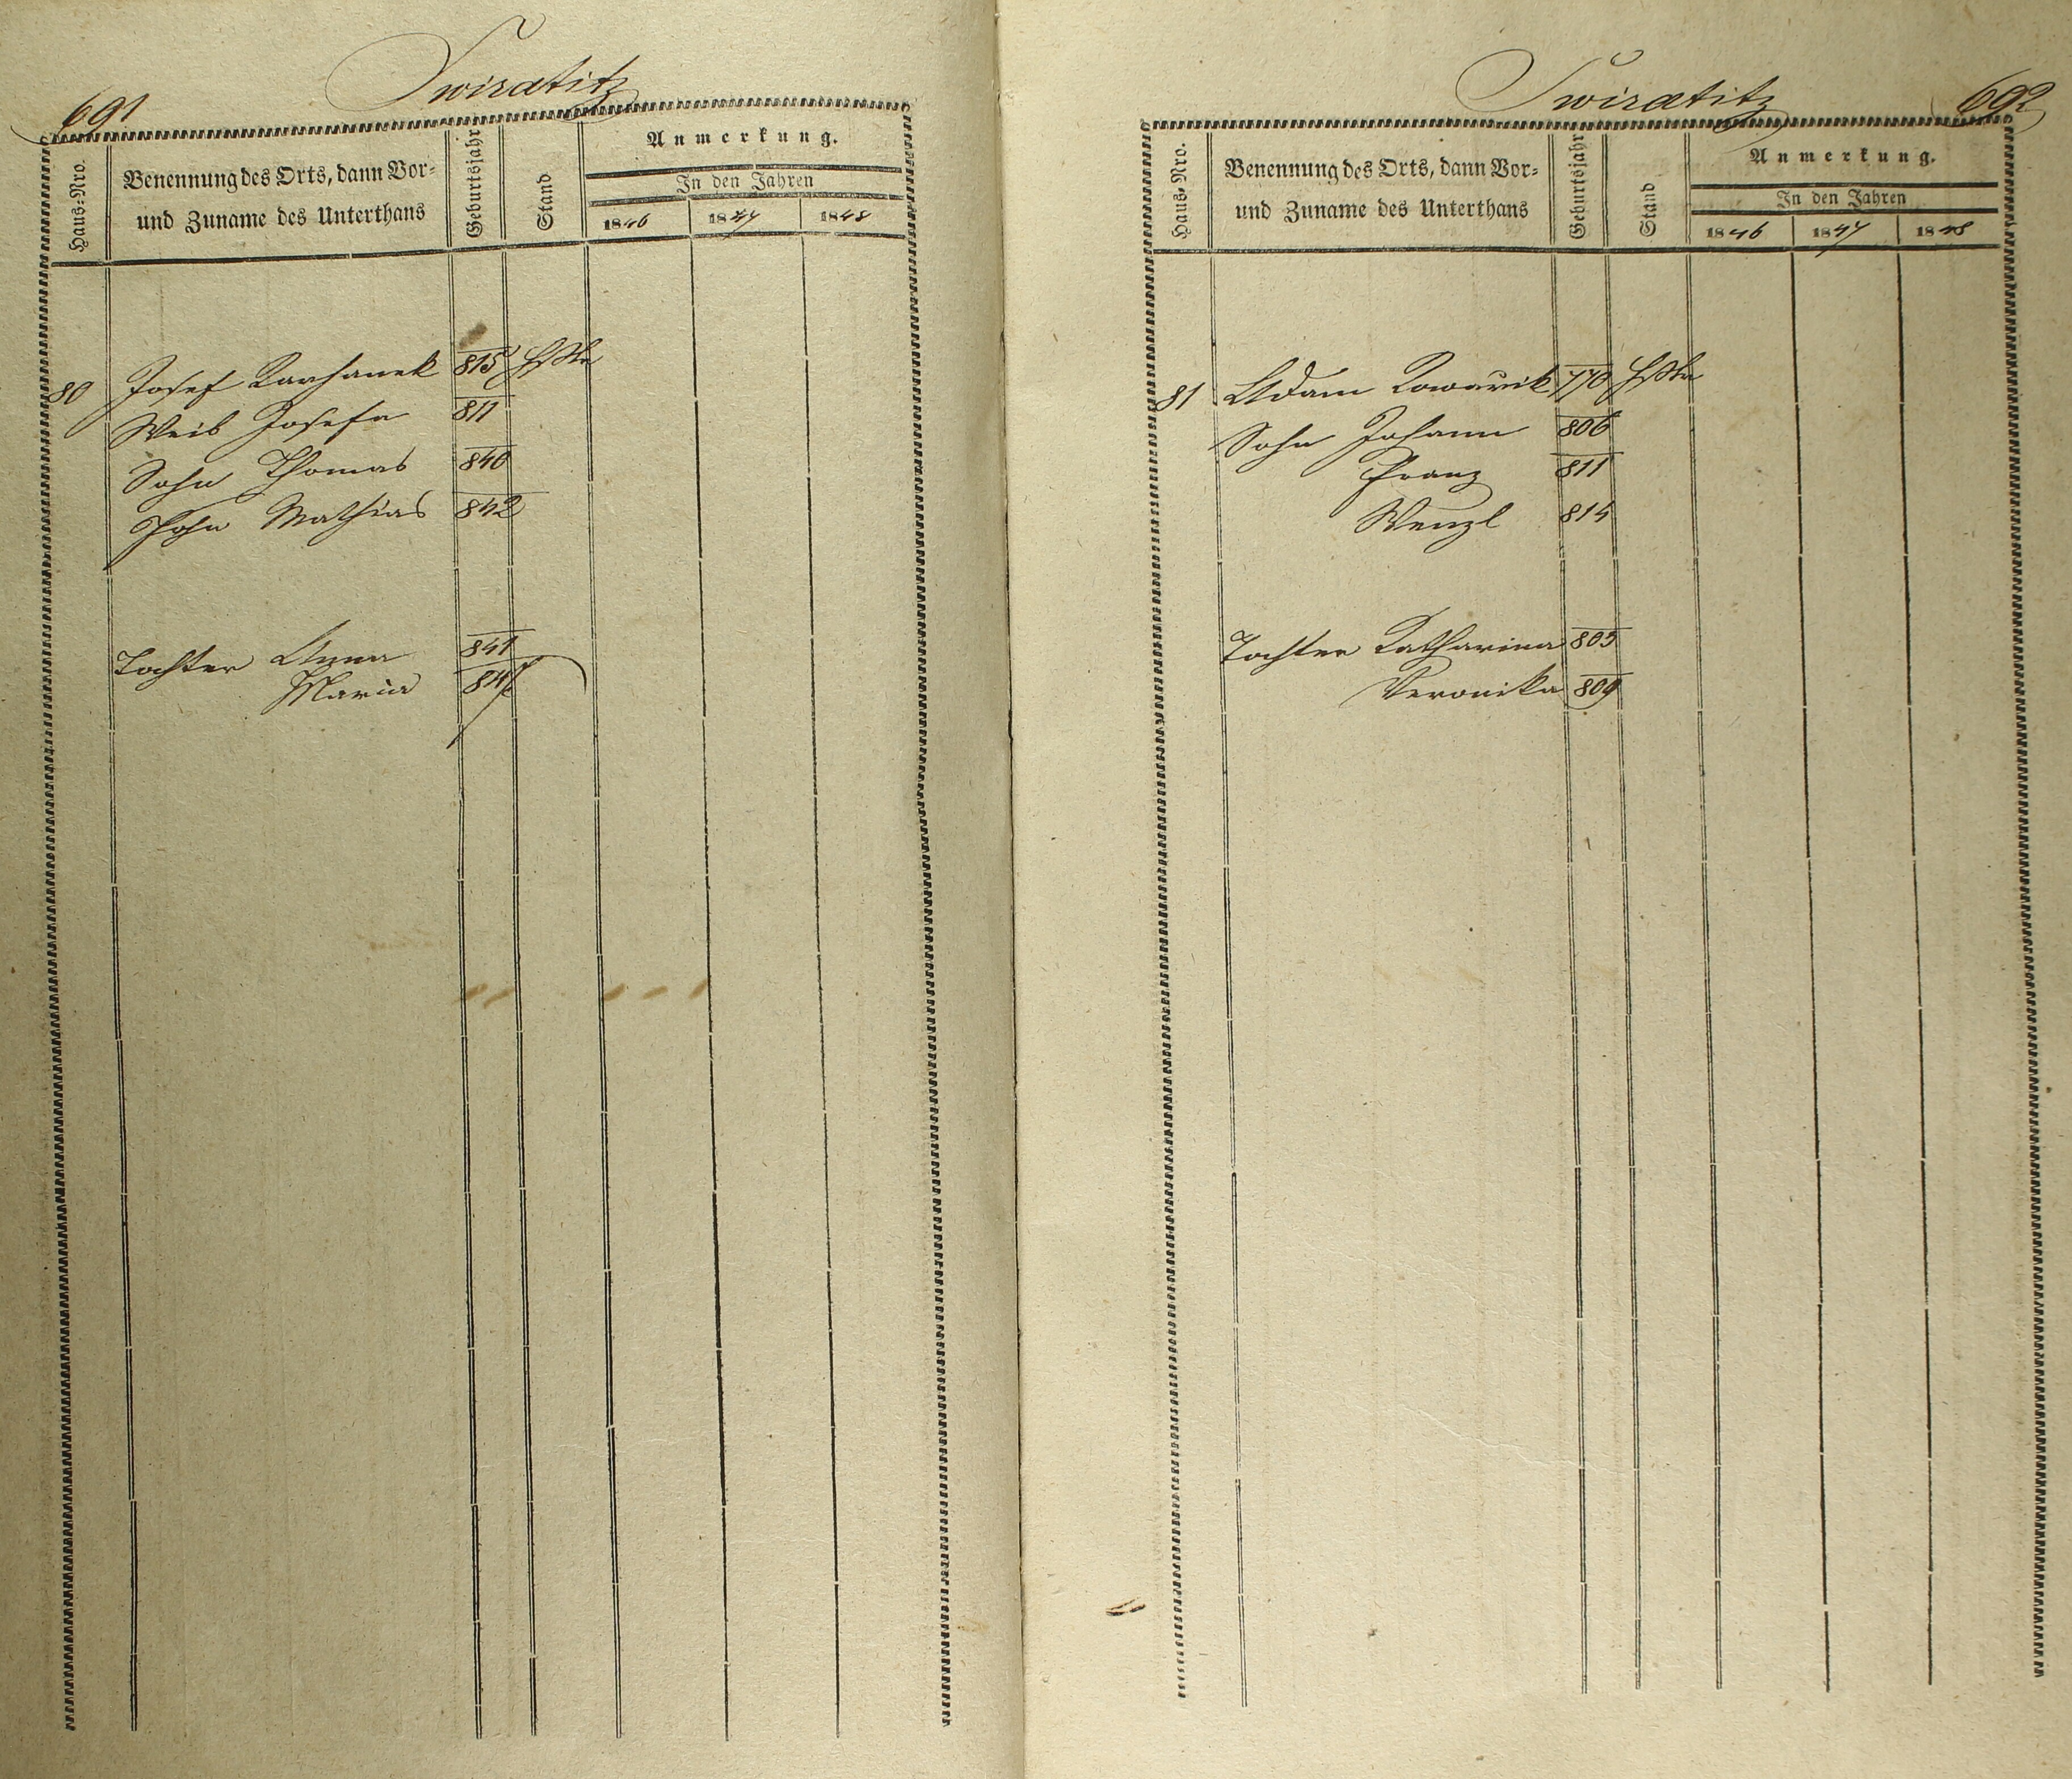 691
Swiratitz
Haus-Nro.
Benennung des Orts, dann Vor-
und Zuname des Unterthans
Geburtsjahr
Stand
Anmerkung.
In den Jahren
1846 1847 1848
80 Josef 815
Weib Josefa 811
Sohn Thomas 840
Sohn Mathias 842
Tochter Anna 841
Maria
692
Swiratitz
Haus-Nro.
Benennung des Orts, dann Vor-
und Zuname des Unterthans
Geburtsjahr
Stand
Anmerkung.
In den Jahren
1846 1847 1848
81 Adam Kowařik 770
Sohn Johann 806
Franz 811
Wenzl 814
Tochter Katharina 803
Veronika 809